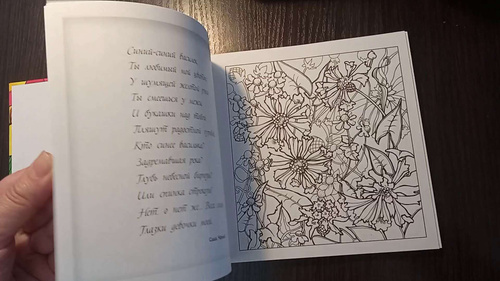 Синий-синий василёк,
Ты любимый мой цветок
У шумящей жёлтой ржи
Ты смеёшься у межи,
И букашки над тобой
Пляшут радостной толпой.
Кто синее василька?
Задремавшая река?
Глубь небесной бирюзы?
Или спинка стрекозы?
Нет, о нет же. Всех
Глазки девочки моей.
Саша